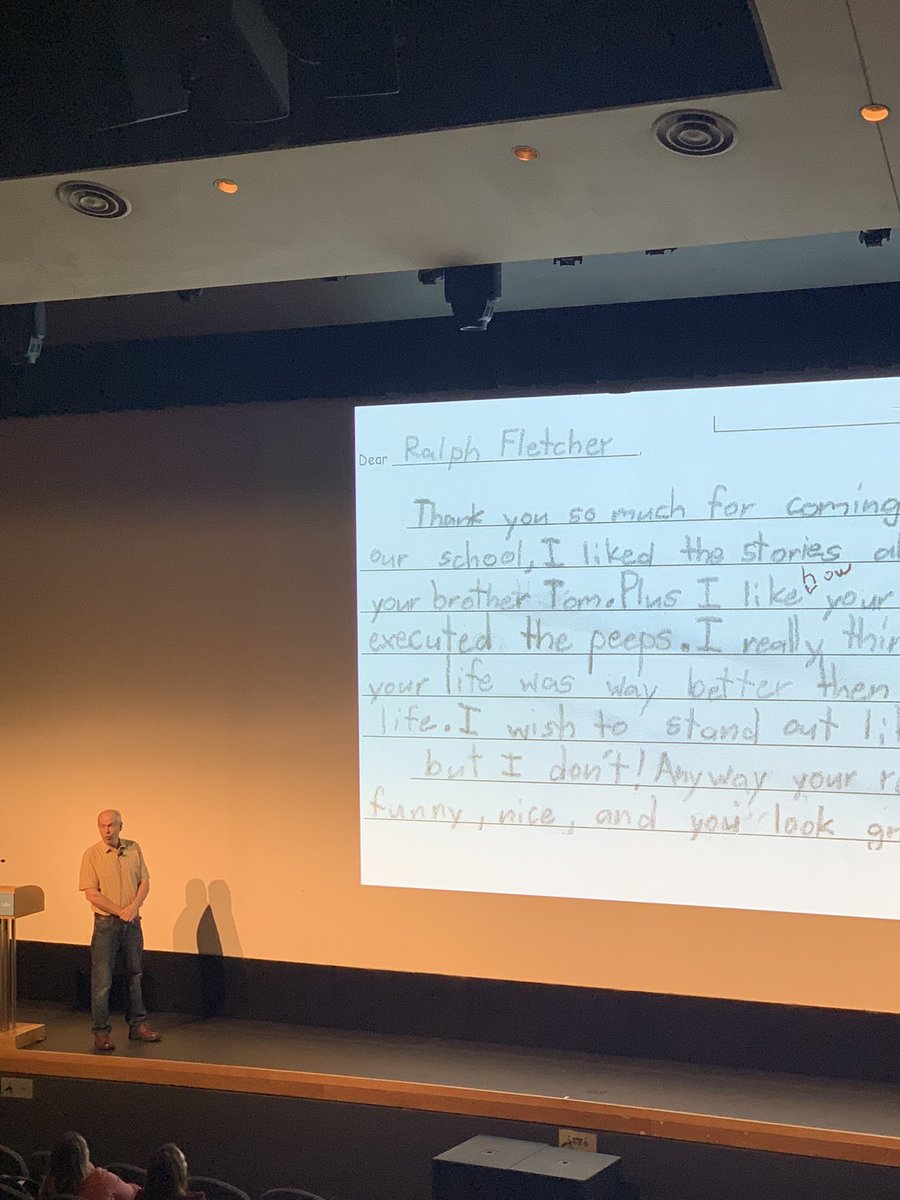 Dear Ralph Fletcher,
Thank you so much for coming
our school, I liked the stories
your brother Tom. Plus I like how your
executed the peeps. I really
your life was way better then
life. I wish to stand out
but I don't! Anyway your
funny, nice, and you look